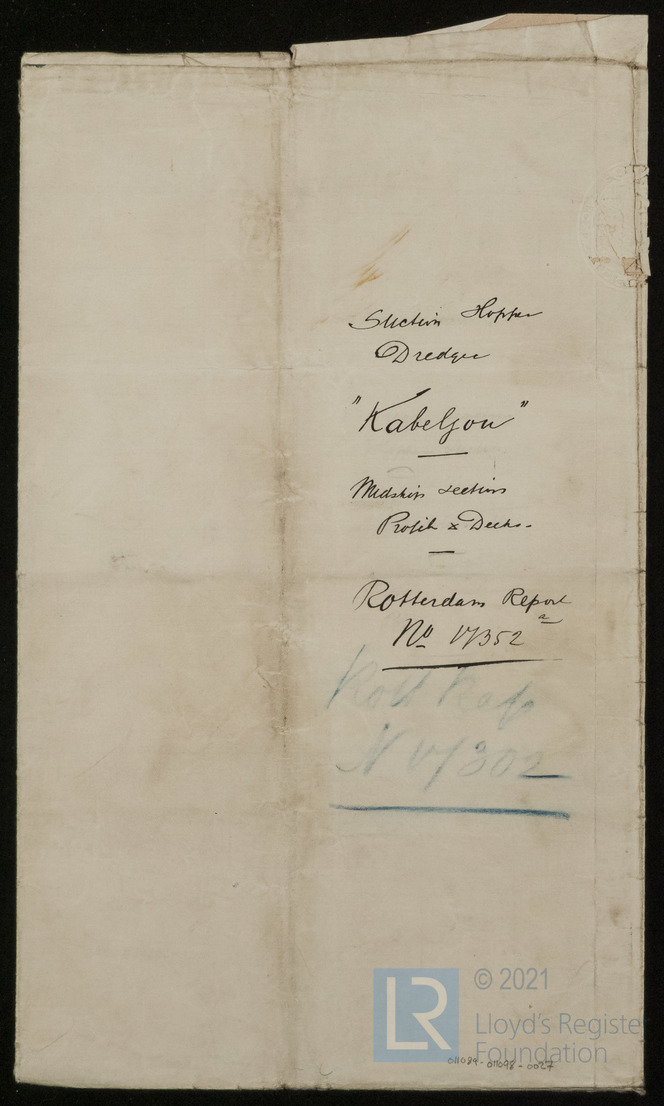 Suction Hopper
Dredger
"Kabeljou"
Midship section
Profile & Decks.
Rotterdam Report
No 17352
a
Rott Rep
N 17302
LR
© 2021
Lloyd's Register
Foundation
011089-011098-0027